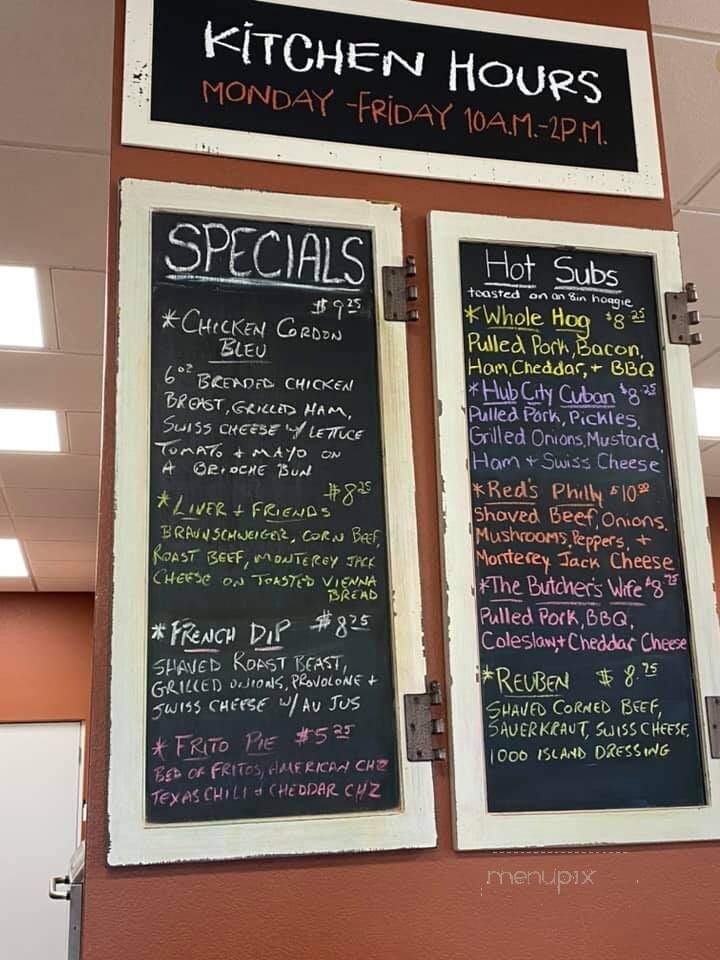 KITCHEN HOURS
MONDAY-FRIDAY 10A.M.-2P.M.
SPECIALS
$9.25
* CHICKEN CORDON
BLEU
6oz BREADED CHICKEN
BREAST, GRILLED HAM,
SWISS CHEESE W/ LETTUCE
TOMATO + MAYO ON
A BRIOCHE BUN
* LIVER + FRIENDS $8.25
BRAUNSCHWEIGER, CORN BEEF,
ROAST BEEF, MONTEREY JACK
CHEESE ON TOASTED VIENNA
BREAD
* FRENCH DIP $8.25
SHAVED ROAST BEAST,
GRILLED ONIONS, PROVOLONE +
SWISS CHEESE W/ AU JUS
* FRITO PIE $5.25
BED OF FRITOS, AMERICAN CHZ
TEXAS CHILI + CHEDDAR CHZ
Hot Subs
toasted on an 8in hoggie
* Whole Hog $8.25
Pulled Pork, Bacon,
Ham, Cheddar, + BBQ
* Hub City Cuban $8.25
Pulled Pork, Pickles,
Grilled Onions, Mustard,
Ham + Swiss Cheese
* Red's Philly $10.00
Shaved Beef, Onions,
Mushrooms, Peppers, +
Monterey Jack Cheese
* The Butcher's Wife $8.75
Pulled Pork, BBQ,
Coleslaw + Cheddar Cheese
* REUBEN $8.75
SHAVED CORNED BEEF,
SAUERKRAUT, SWISS CHEESE,
1000 ISLAND DRESSING
menupix